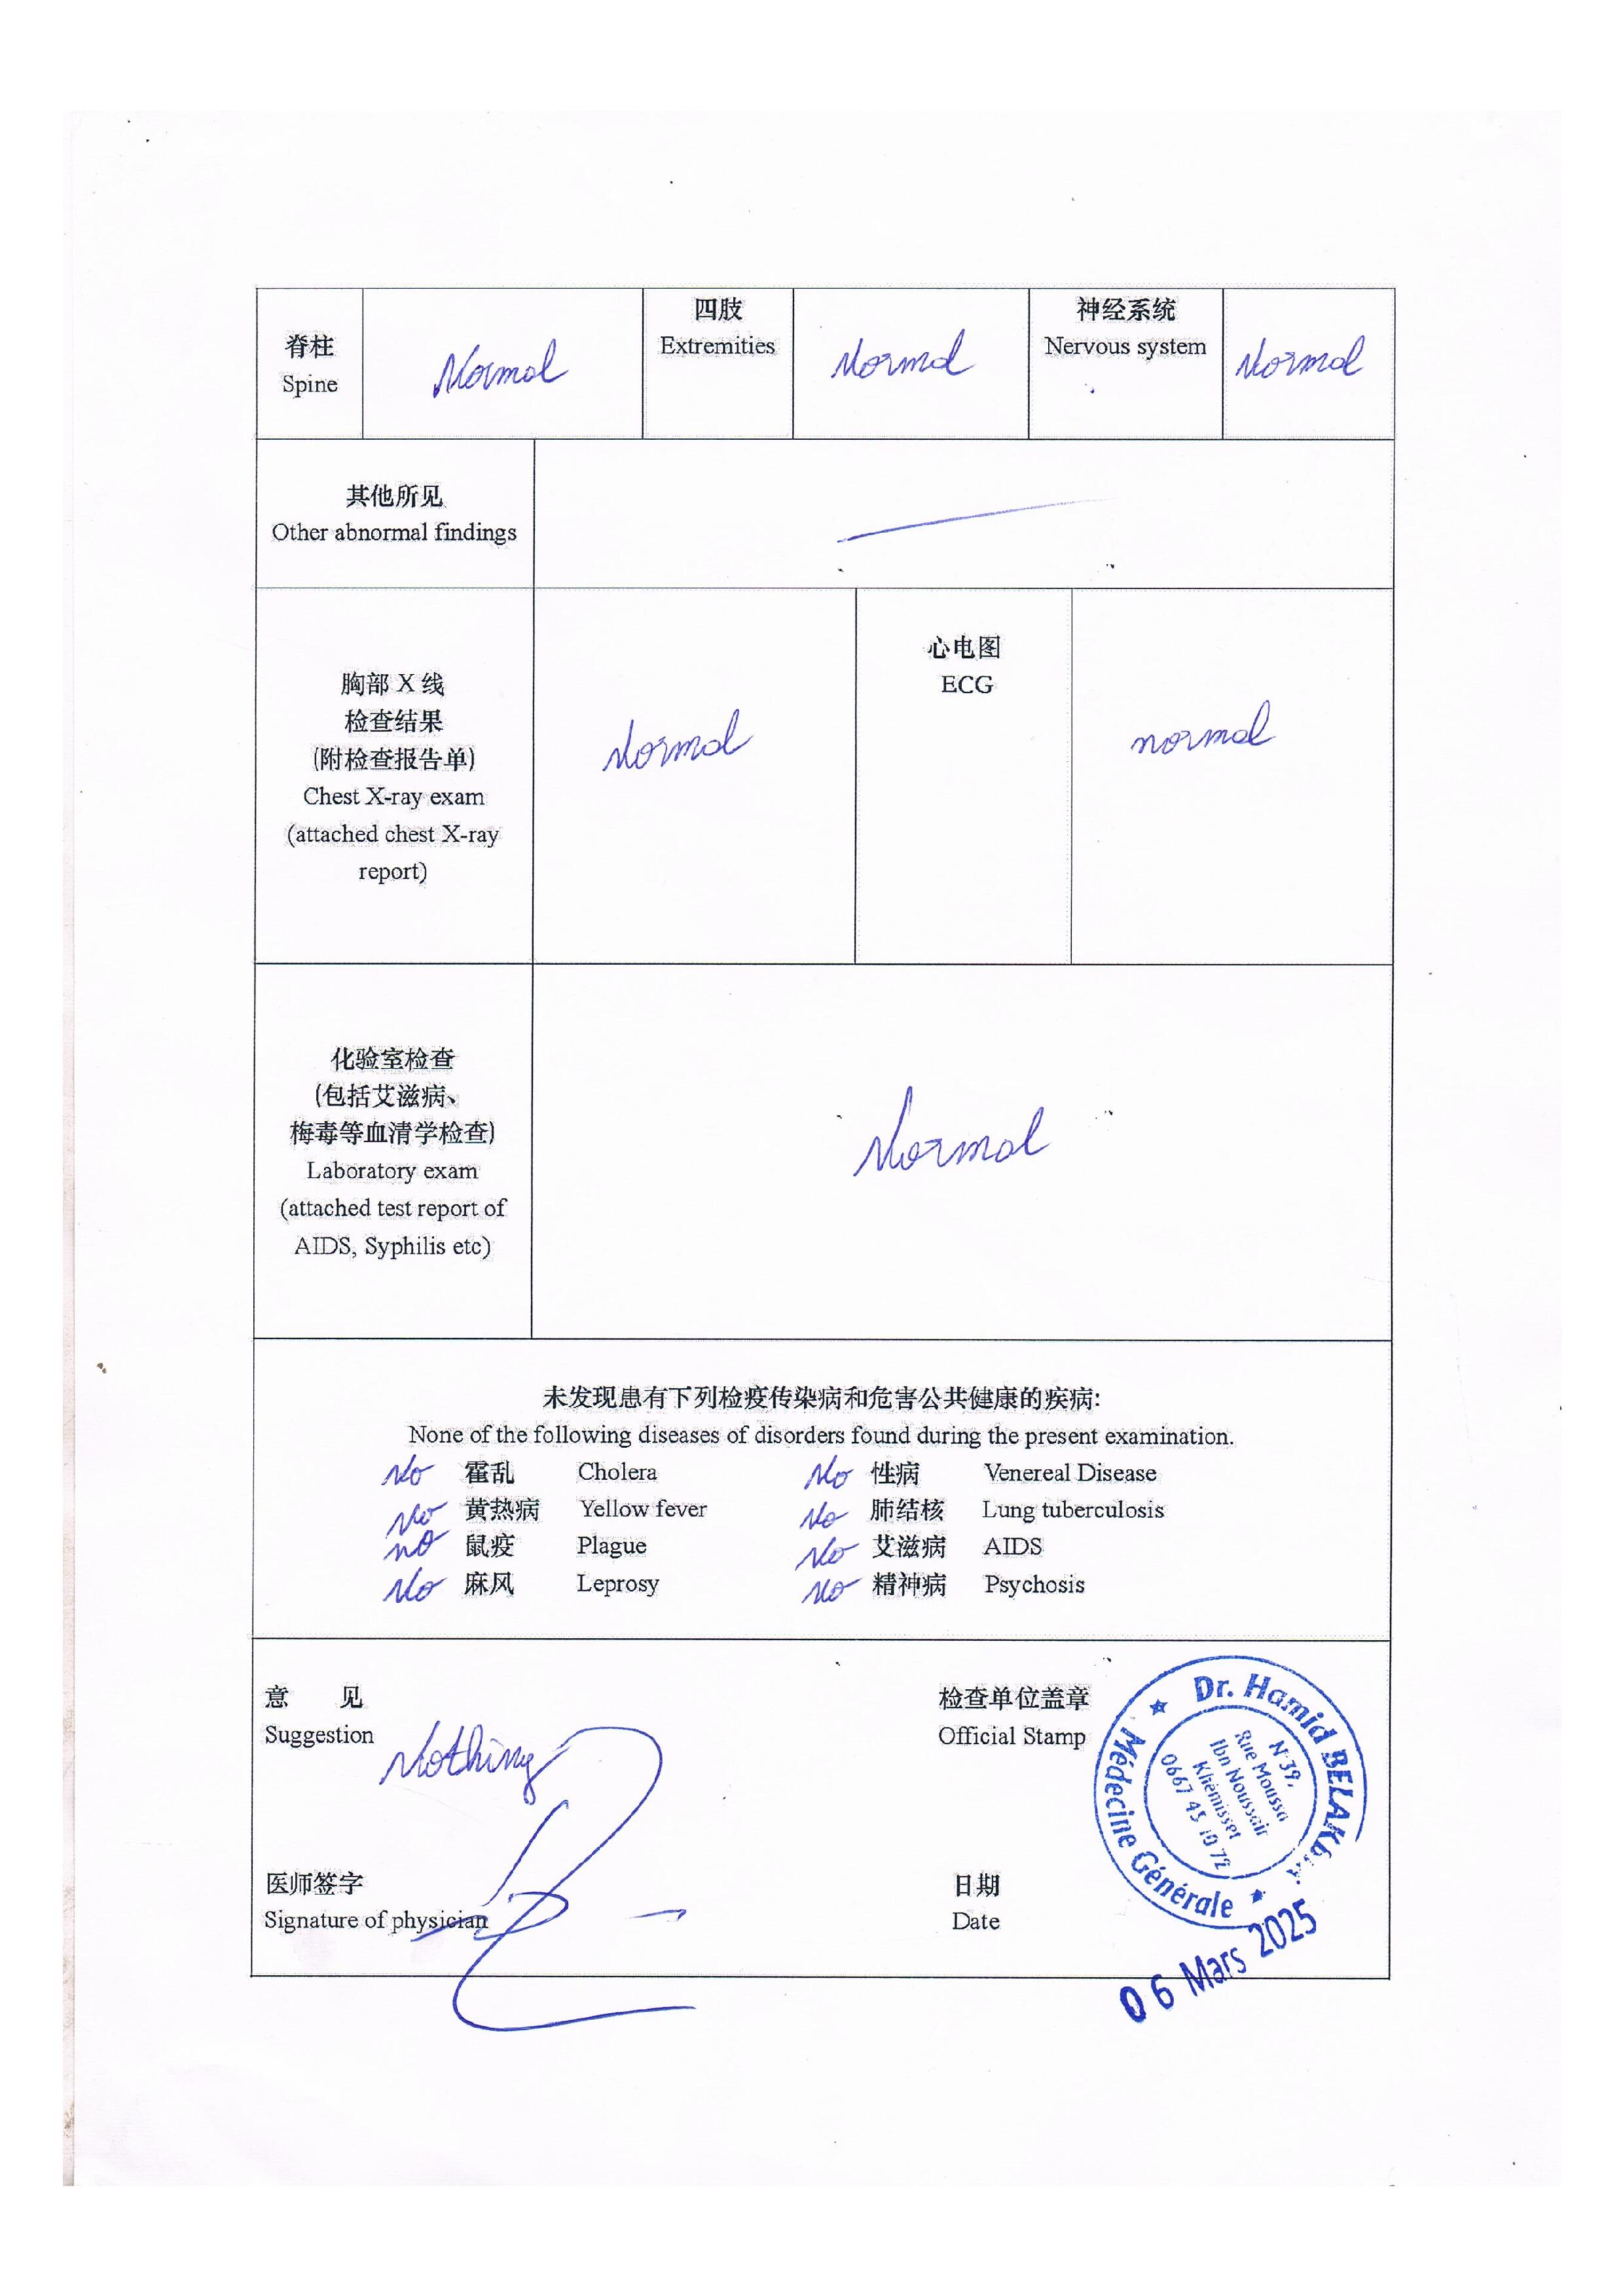 脊柱
Spine
Normal
四肢
Extremities
Normal
神经系统
Nervous system
Normal
其他所见
Other abnormal findings
胸部 X 线
检查结果
(附检查报告单)
Chest X-ray exam
(attached chest X-ray
report)
Normal
心电图
ECG
normal
化验室检查
(包括艾滋病、
梅毒等血清学检查)
Laboratory exam
(attached test report of
AIDS, Syphilis etc)
Normal
未发现患有下列检疫传染病和危害公共健康的疾病:
None of the following diseases of disorders found during the present examination.
No 霍乱 Cholera No 性病 Venereal Disease
No 黄热病 Yellow fever No 肺结核 Lung tuberculosis
no 鼠疫 Plague No 艾滋病 AIDS
No 麻风 Leprosy No 精神病 Psychosis
意 见
Suggestion
Nothing
检查单位盖章
Official Stamp
Dr. Hamid
Médecine Générale
N°39,
Rue Moussa
Ibn Noussair
Khémisset
0667 45 10 72
医师签字
Signature of physician
日期
Date
06 Mars 2025